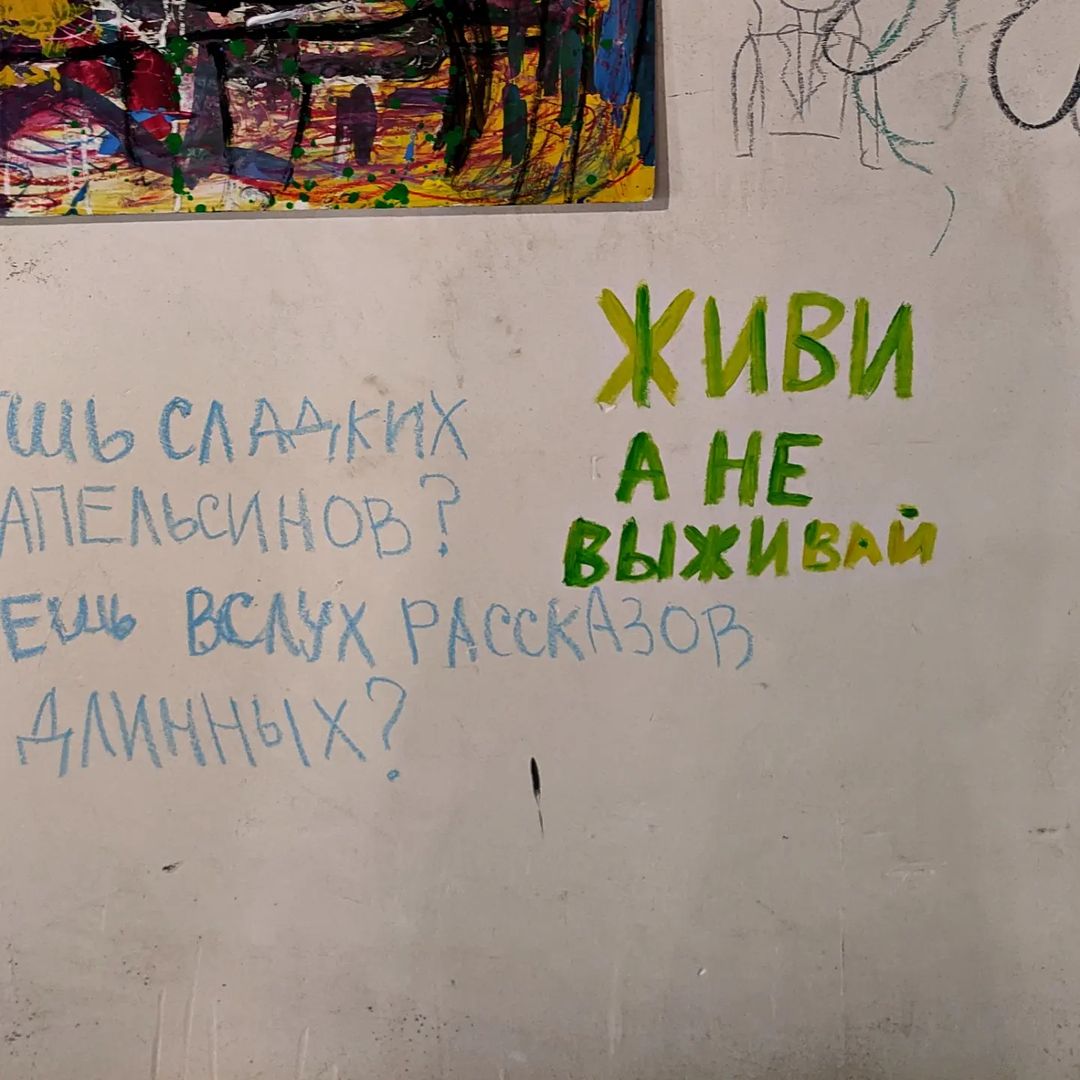 СЛАДКИХ
АПЕЛЬСИНОВ?
ВСЛУХ РАССКАЗОВ
ДЛИННЫХ?
ЖИВИ
А НЕ
ВЫЖИВАЙ